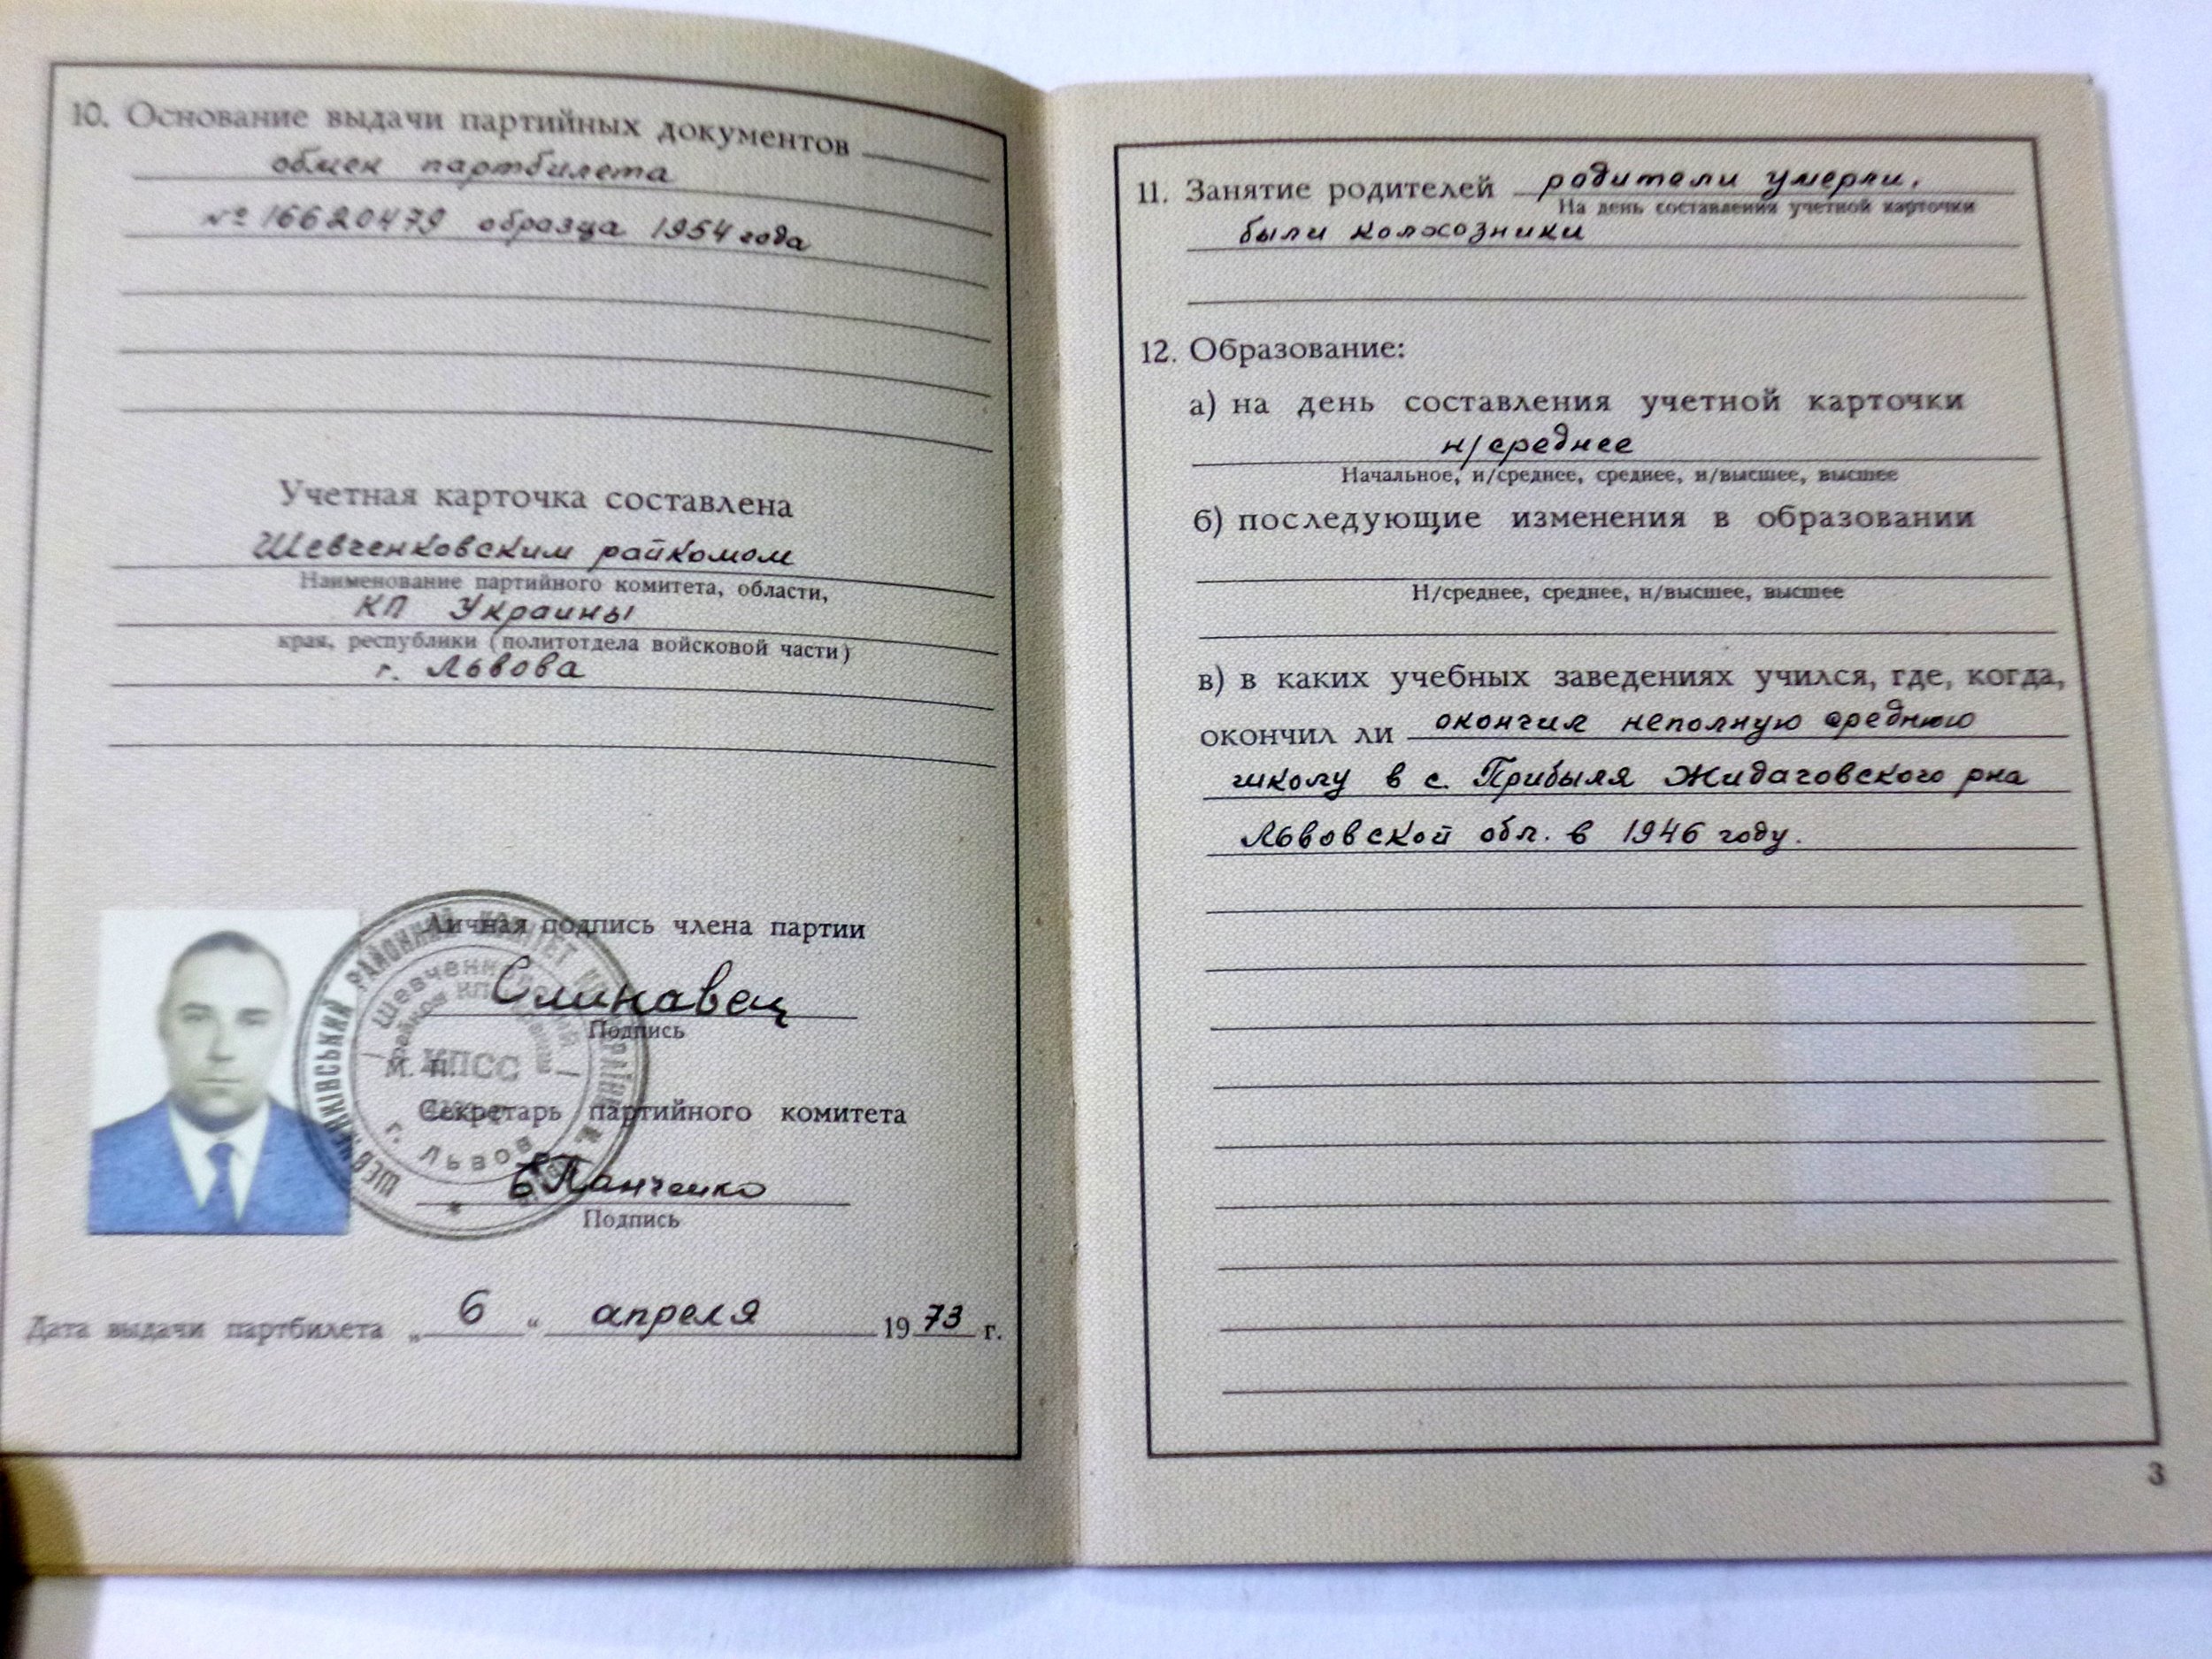 10. Основание выдачи партийных документов
обмен партбилета
№ 16620479 образца 1954 года
Учетная карточка составлена
Шевченковским райкомом
Наименование партийного комитета, области,
КП Украины
края, республики (политотдела войсковой части)
г. Львова
Личная подпись члена партии
Слинавец
Подпись
М. П.
Секретарь партийного комитета
БПанченко
Подпись
ШЕВЧЕНКІВСЬКИЙ РАЙОННИЙ КОМІТЕТ
Шевченковский
райком КП Украины
КПСС
г. Львов
Дата выдачи партбилета „ 6 “ апреля 19 73 г.
11. Занятие родителей родители умерли,
На день составления учетной карточки
были колхозники
12. Образование:
а) на день составления учетной карточки
н/среднее
Начальное, н/среднее, среднее, н/высшее, высшее
б) последующие изменения в образовании
Н/среднее, среднее, н/высшее, высшее
в) в каких учебных заведениях учился, где, когда,
окончил ли окончил неполную среднюю
школу в с. Прибыля Жидачовского рна
Львовской обл. в 1946 году.
3